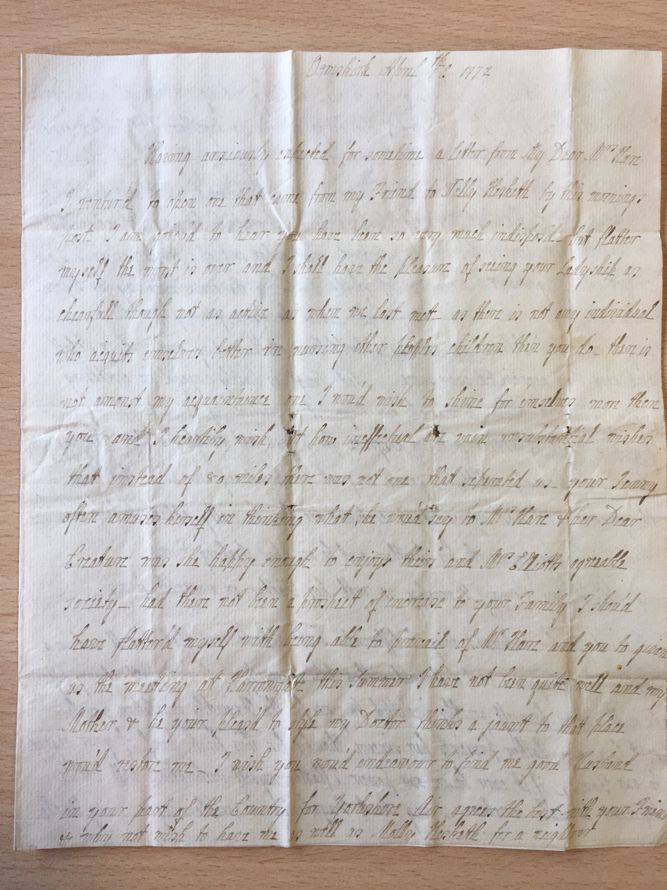 Ormskirk April 7th 1772
Having anxiously expected for sometime a letter from My Dear Mrs Hare
I ventur'd to open one that came from my Friend to Molly Hesketh by this mornings
post. I am to hear you have been so very much indispos'd but flatter
myself the worst is over and I shall have the pleasure of seeing your Ladyship as
chearfull though not as active as when we last met as there is not any individual
who acquits emselves better in nursing other peoples children than you do there is
not amonst my acquaintance one I wou'd wish to shine for emselves more then
you and I heartily wish but how ineffectual are vain unsubstantial wishes
that instead of 80 miles there was not one that seperated us your
often amuses herself in thinking what she wou'd say to Mrs Hare & her Dear
Creature was she happy enough to enjoy theirs and Mrs agreable
society had there not been a prospect of encrease to your Family I shou'd
have flatter'd myself with being able to prevail of Mr Hare and you to
us the meeting at this summer I have not been quite well and my
Mother & be your pleas'd to my Doctor thinks a jaunt to that place
wou'd restore me I wish you wou'd endeavour to find me good Husband
in your part of the Country for Yorkshire Air agrees the best with your
& why not wish to have me as well as Molly Hesketh for a neighbour